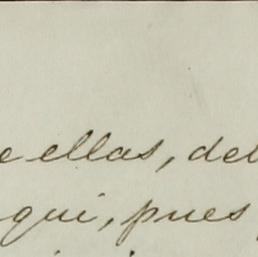 e ellas, del
qui, pues